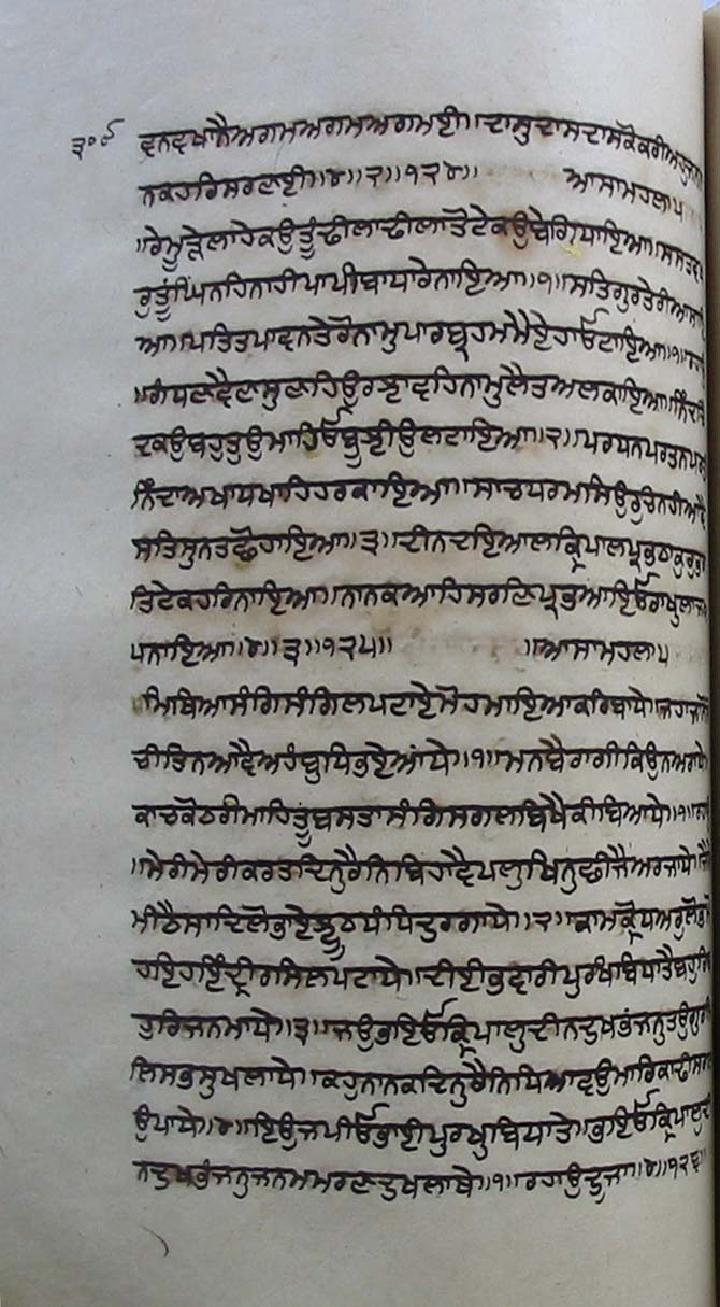 ੩੦੯ ਵਨਵਖਾਨੈਅਗਮਅਗਮਅਗਮਈ॥ਦਾਸੁਦਾਸਦਾਸਕੋਕਰੀਅਹੁ
ਨਕਹਰਿਸਰਣਾਈ॥੪॥੨॥੧੨੪॥ ਆਸਾਮਹਲਾ੫
॥ਰੇਮੂੜੇਲਾਹੇਕਉਤੂੰਢੀਲਾਢੀਲਾਤੋਟੇਕਉਬੇਗਿਧਾਇਆ॥ਸਸਤਵ
ਰੁਤੂੰਘਿਨਹਿਨਾਹੀਪਾਪੀਬਾਧਾਰੇਨਾਇਆ॥੧॥ਸਤਿਗੁਰਤੇਰੀਆਸਾ
ਆ॥ਪਤਿਤਪਾਵਨਤੇਰੋਨਾਮੁਪਾਰਬ੍ਰਹਮਮੈਏਹਾਓਟਾਇਆ॥੧॥ਰਹਾ
॥ਗੰਧਣਵੈਣਸੁਣਹਿਉਰਝਾਵਹਿਨਾਮੁਲੈਤਅਲਕਾਇਆ॥ਨਿੰਦਚਿੰ
ਦਕਉਬਹੁਤੁਉਮਾਹਿਓਬੂਝੀਉਲਟਾਇਆ॥੨॥ਪਰਧਨਪਰਤਨਪਰ
ਨਿੰਦਾਅਖਾਧਖਾਹਿਹਰਕਾਇਆ॥ਸਾਚਧਰਮਸਿਉਰੁਚਿਨਹੀਆਵੈ
ਸਤਿਸੁਨਤਛੋਹਾਇਆ॥੩॥ਦੀਨਦਇਆਲਕ੍ਰਿਪਾਲਪ੍ਰਭਠਾਕੁਰਭ
ਤਿਟੇਕਹਰਿਨਾਇਆ॥ਨਾਨਕਆਹਿਸਰਣਿਪ੍ਰਭਆਇਓਰਾਖੁਲਾਜ
ਪਨਾਇਆ॥੪॥੩॥੧੨੫॥ ॥ਆਸਾਮਹਲਾ੫
॥ਮਿਥਿਆਸੰਗਿਸੰਗਿਲਪਟਾਏਮੋਹਮਾਇਆਕਰਿਬਾਧੇ॥ਜਹਜਾਨੋ
ਚੀਤਿਨਆਵੈਅਹੰਬੁਧਿਭਏਆਂਧੇ॥੧॥ਮਨਬੈਰਾਗੀਕਿਉਨਅਰਾਧੇ
ਕਾਚਕੋਠਰੀਮਾਹਿਤੂੰਬਸਤਾਸੰਗਿਸਗਲਬਿਖੈਕੀਬਿਆਧੇ॥੧॥ਰਹਾ
॥ਮੇਰੀਮੇਰੀਕਰਤਦਿਨੁਰੈਨਿਬਿਹਾਵੈਪਲੁਖਿਨੁਛੀਜੈਅਰਜਾਧੇ॥ਜੈ
ਮੀਠੈਸਾਦਿਲੋਭਾਏਝੂਠਧੰਧਿਦੁਰਗਾਧੇ॥੨॥ਕਾਮਕ੍ਰੋਧਅਰੁਲੋਭਮੋ
ਹਇਹਇੰਦ੍ਰੀਰਸਿਲਪਟਾਧੇ॥ਦੀਈਭਵਾਰੀਪੁਰਖਿਬਿਧਾਤੈਬਹੁਰਿ
ਹੁਰਿਜਨਮਾਧੇ॥੩॥ਜਉਭਇਓਕ੍ਰਿਪਾਲੁਦੀਨਦੁਖਭੰਜਨੁਤਉਗੁਰਮਿ
ਲਿਸਭਸੁਖਲਾਧੇ॥ਕਹੁਨਾਨਕਦਿਨੁਰੈਨਿਧਿਆਵਉਮਾਰਿਕਾਢੀਸਗਲ
ਉਪਾਧੇ॥੪॥ਇਉਜਪੀਓਭਾਈਪੁਰਖੁਬਿਧਾਤੇ॥ਭਇਓਕ੍ਰਿਪਾਲੁਦੀ
ਨਦੁਖਭੰਜਨੁਜਨਮਮਰਣਦੁਖਲਾਥੇ॥੧॥ਰਹਾਉਦੂਜਾ॥੪॥੧੨੬॥